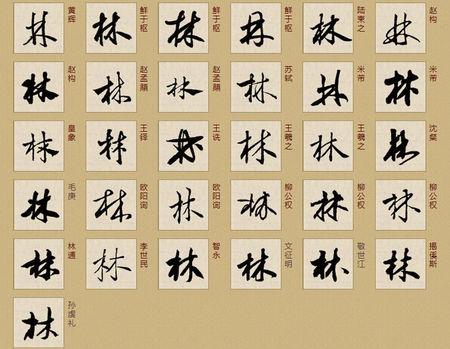 林 黄辉 林 鲜于枢 林 鲜于枢 林 鲜于枢 林 陆柬之 林 赵构
林 赵构 林 赵孟頫 林 赵孟頫 林 苏轼 林 米芾 林 米芾
林 皇象 林 王铎 林 王诜 林 王羲之 林 王羲之 林 沈粲
林 毛庚 林 欧阳询 林 欧阳询 林 柳公权 林 柳公权 林 柳公权
林 林逋 林 李世民 林 智永 林 文征明 林 敬世江 林 揭傒斯
林 孙虔礼